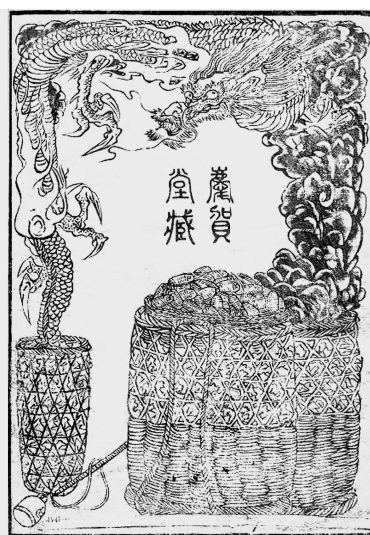 慶賀
堂藏